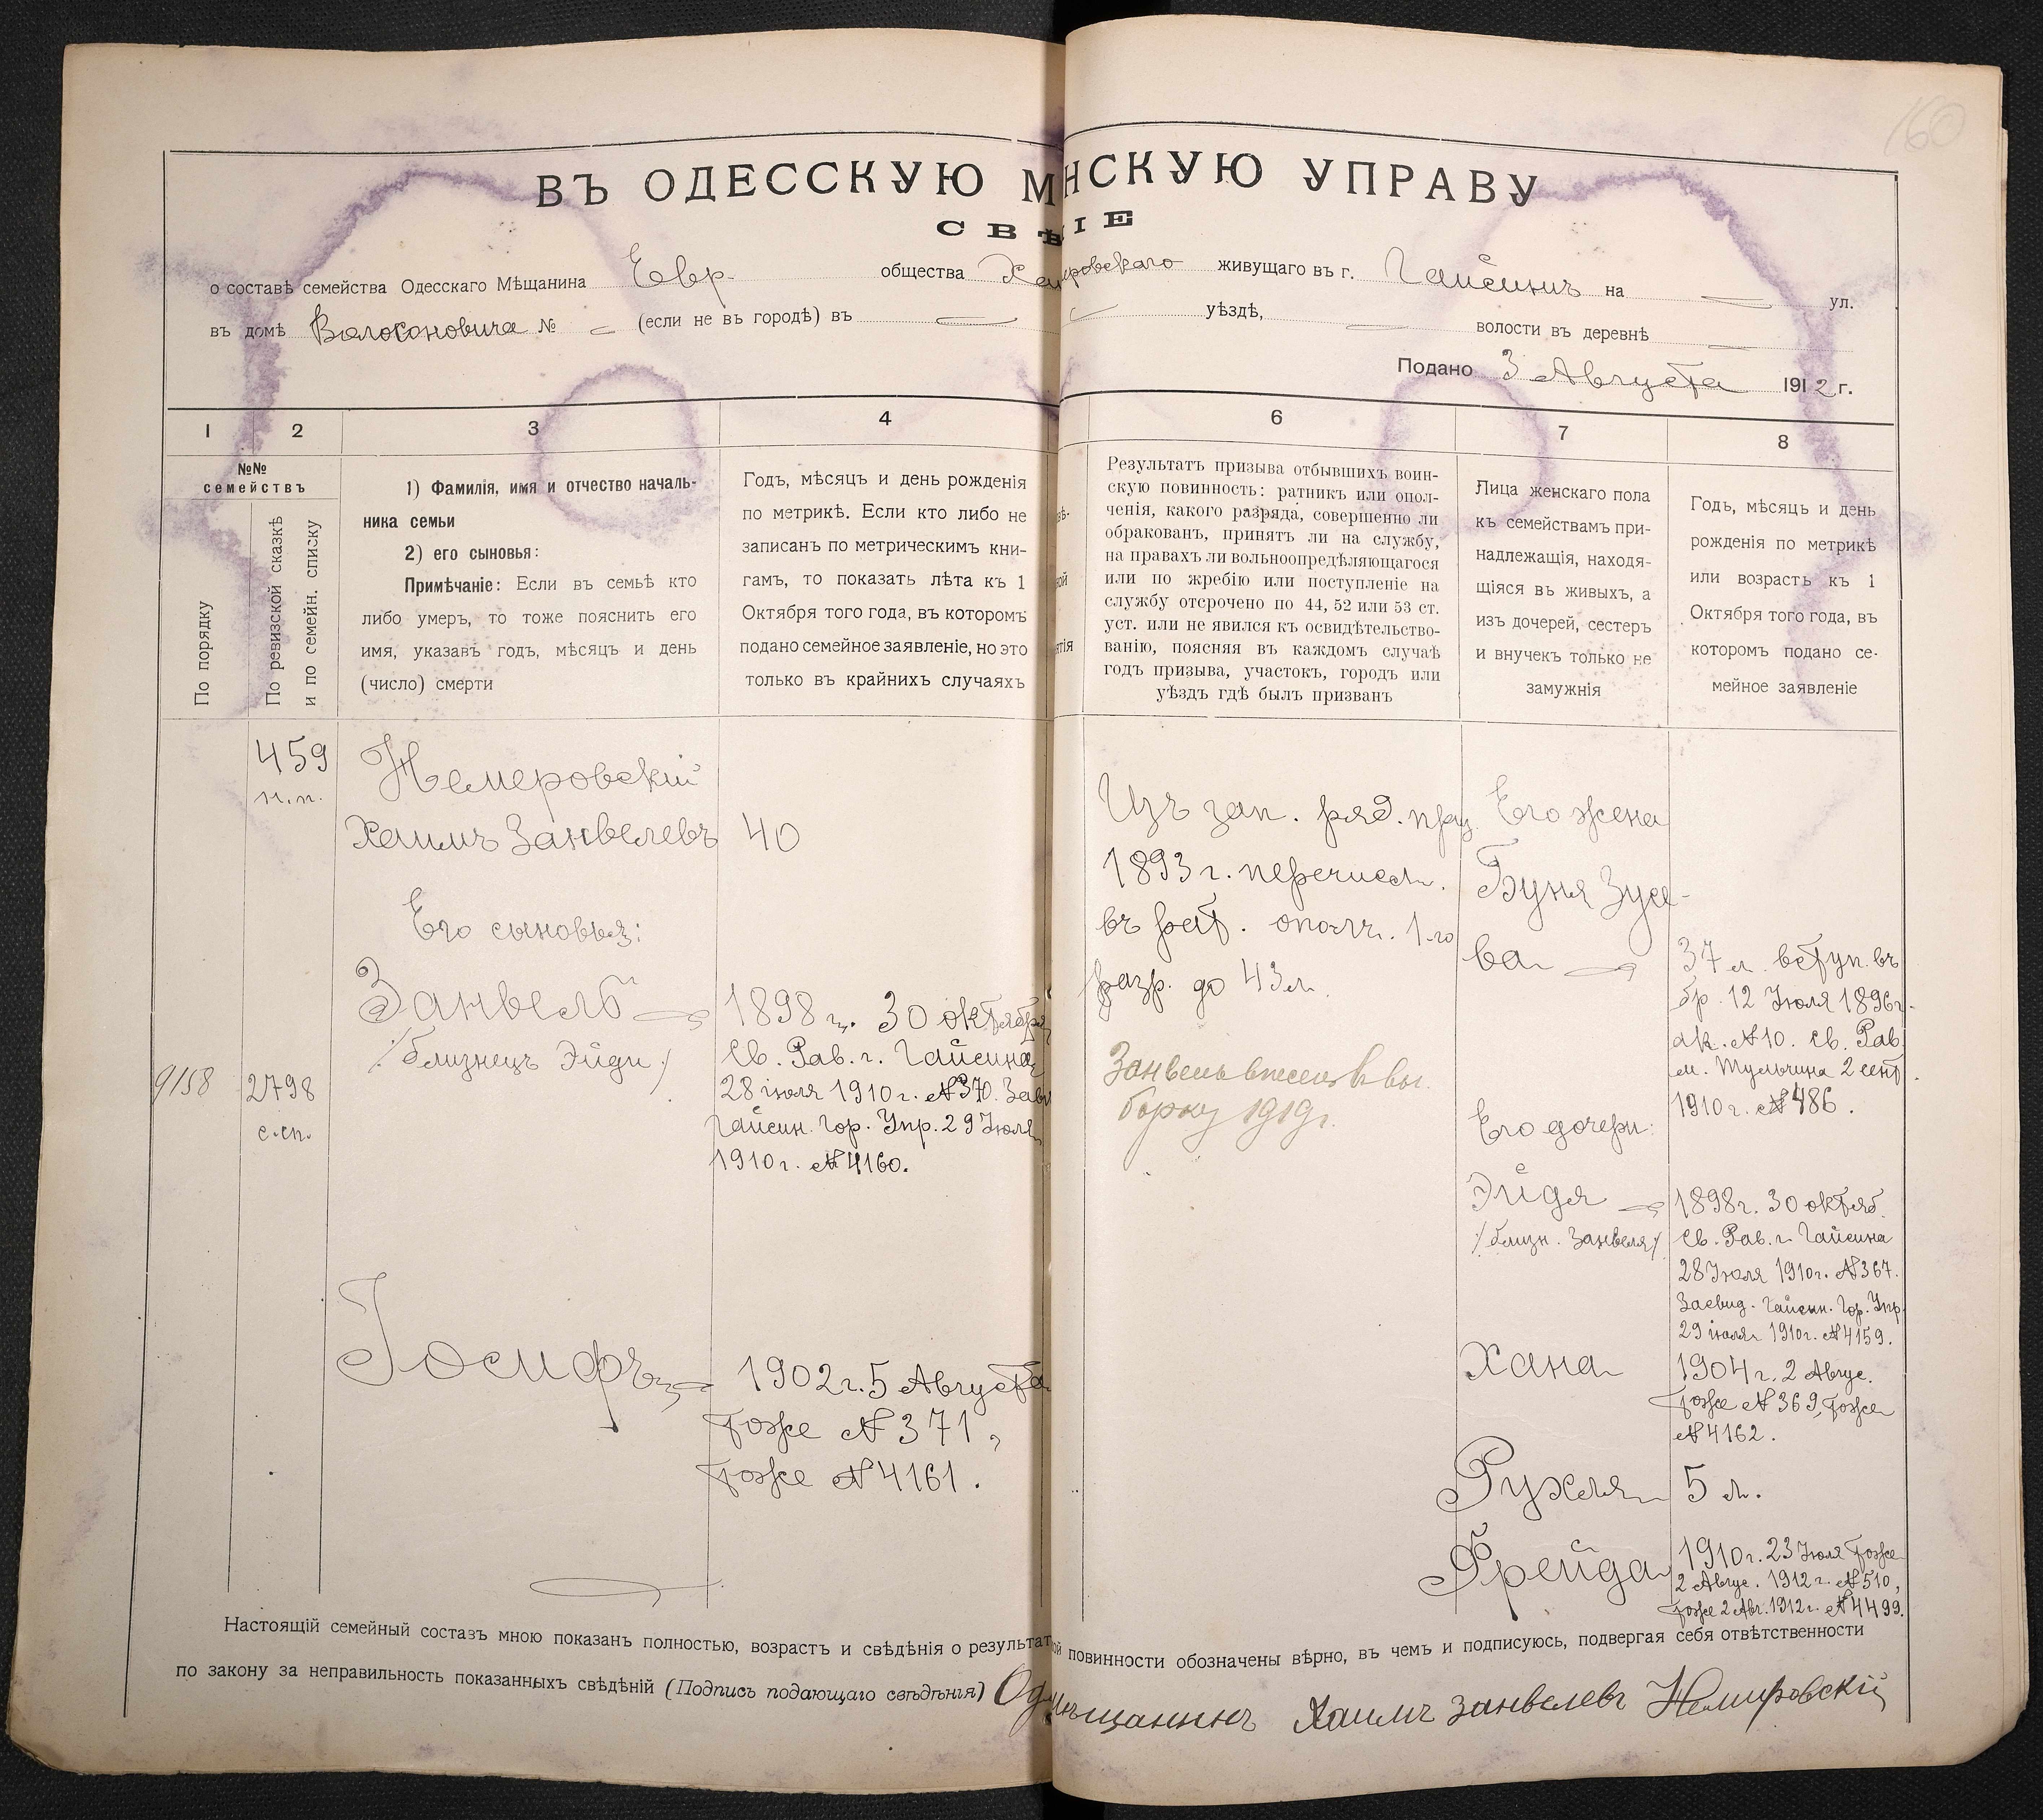 160
ВЪ ОДЕССКУЮ М НСКУЮ УПРАВУ
СВѢ ІЕ
о составѣ семейства Одесскаго Мѣщанина Евр. общества живущаго въ г. Гайсинѣ на — ул.
въ домѣ Волоконовича № — (если не въ городѣ) въ — уѣздѣ, — волости въ деревнѣ —
Подано 3 Августа 1912 г.
1 2 3 4 6 7 8
№№ семействъ
По порядку
По ревизской сказкѣ
и по семейн. списку
1) Фамилія, имя и отчество началь-
ника семьи
2) его сыновья:
Примѣчаніе: Если въ семьѣ кто
либо умеръ, то тоже пояснить его
имя, указавъ годъ, мѣсяцъ и день
(число) смерти
Годъ, мѣсяцъ и день рожденія
по метрикѣ. Если кто либо не
записанъ по метрическимъ кни-
гамъ, то показать лѣта къ 1
Октября того года, въ которомъ
подано семейное заявленіе, но это
только въ крайнихъ случаяхъ
Результатъ призыва отбывшихъ воин-
скую повинность: ратникъ или опол-
ченія, какого разряда, совершенно ли
обракованъ, принятъ ли на службу,
на правахъ ли вольноопредѣляющагося
или по жребію или поступленіе на
службу отсрочено по 44, 52 или 53 ст.
уст. или не явился къ освидѣтельство-
ванію, поясняя въ каждомъ случаѣ
годъ призыва, участокъ, городъ или
уѣздъ гдѣ былъ призванъ
Лица женскаго пола
къ семействамъ при-
надлежащія, находя-
щіяся въ живыхъ, а
изъ дочерей, сестеръ
и внучекъ только не
замужнія
Годъ, мѣсяцъ и день
рожденія по метрикѣ
или возрасть къ 1
Октября того года, въ
которомъ подано се-
мейное заявленіе
459
н.п.
9158
2798
с.сп.
Немеровскій
Хаимъ Занвелевъ
Его сыновья:
Занвель
/близнецъ Эйди/
Іосифъ
40
1898 г. 30 октября
Св. Рав. г. Гайсина
28 іюля 1910 г. №370. Зав
Гайсин. Гор. Упр. 29 Іюля
1910 г. №4160.
1902 г. 5 Августа
тоже №371,
тоже №4161.
Изъ зап. ряд. приз.
1893 г. перечисл.
въ рат. ополч. 1-го
разр. до 43 л.
Занвель внесенъ в вы
борку 1919 г.
Его жена
Буня Зусе-
ва
Его дочери:
Эйдя
/близн. Занвеля/
Хана
Рухля
Фрейда
37 л. вступ. въ
бр. 12 Іюля 1896 г.
ак. №10. Св. Рав.
м. Тульчина 2 сент.
1910 г. №486.
1898 г. 30 октяб.
Св. Рав. г. Гайсина
28 Іюля 1910 г. №367.
Засвид. Гайсин. Гор. Упр
29 іюля 1910 г. №4159.
1904 г. 2 Авгус.
тоже №369, тоже
№4162.
5 л.
1910 г. 23 Іюля тоже
2 Авгус. 1912 г. №510,
тоже 2 Авг. 1912 г. №4499.
Настоящій семейный составъ мною показанъ полностью, возрастъ и свѣдѣнія о результат ой повинности обозначены вѣрно, въ чемъ и подписуюсь, подвергая себя отвѣтственности
по закону за неправильность показанныхъ свѣдѣній (Подпись подающаго свѣдѣнія) Од ѣщанинъ Хаимъ Занвелевъ Немировскій